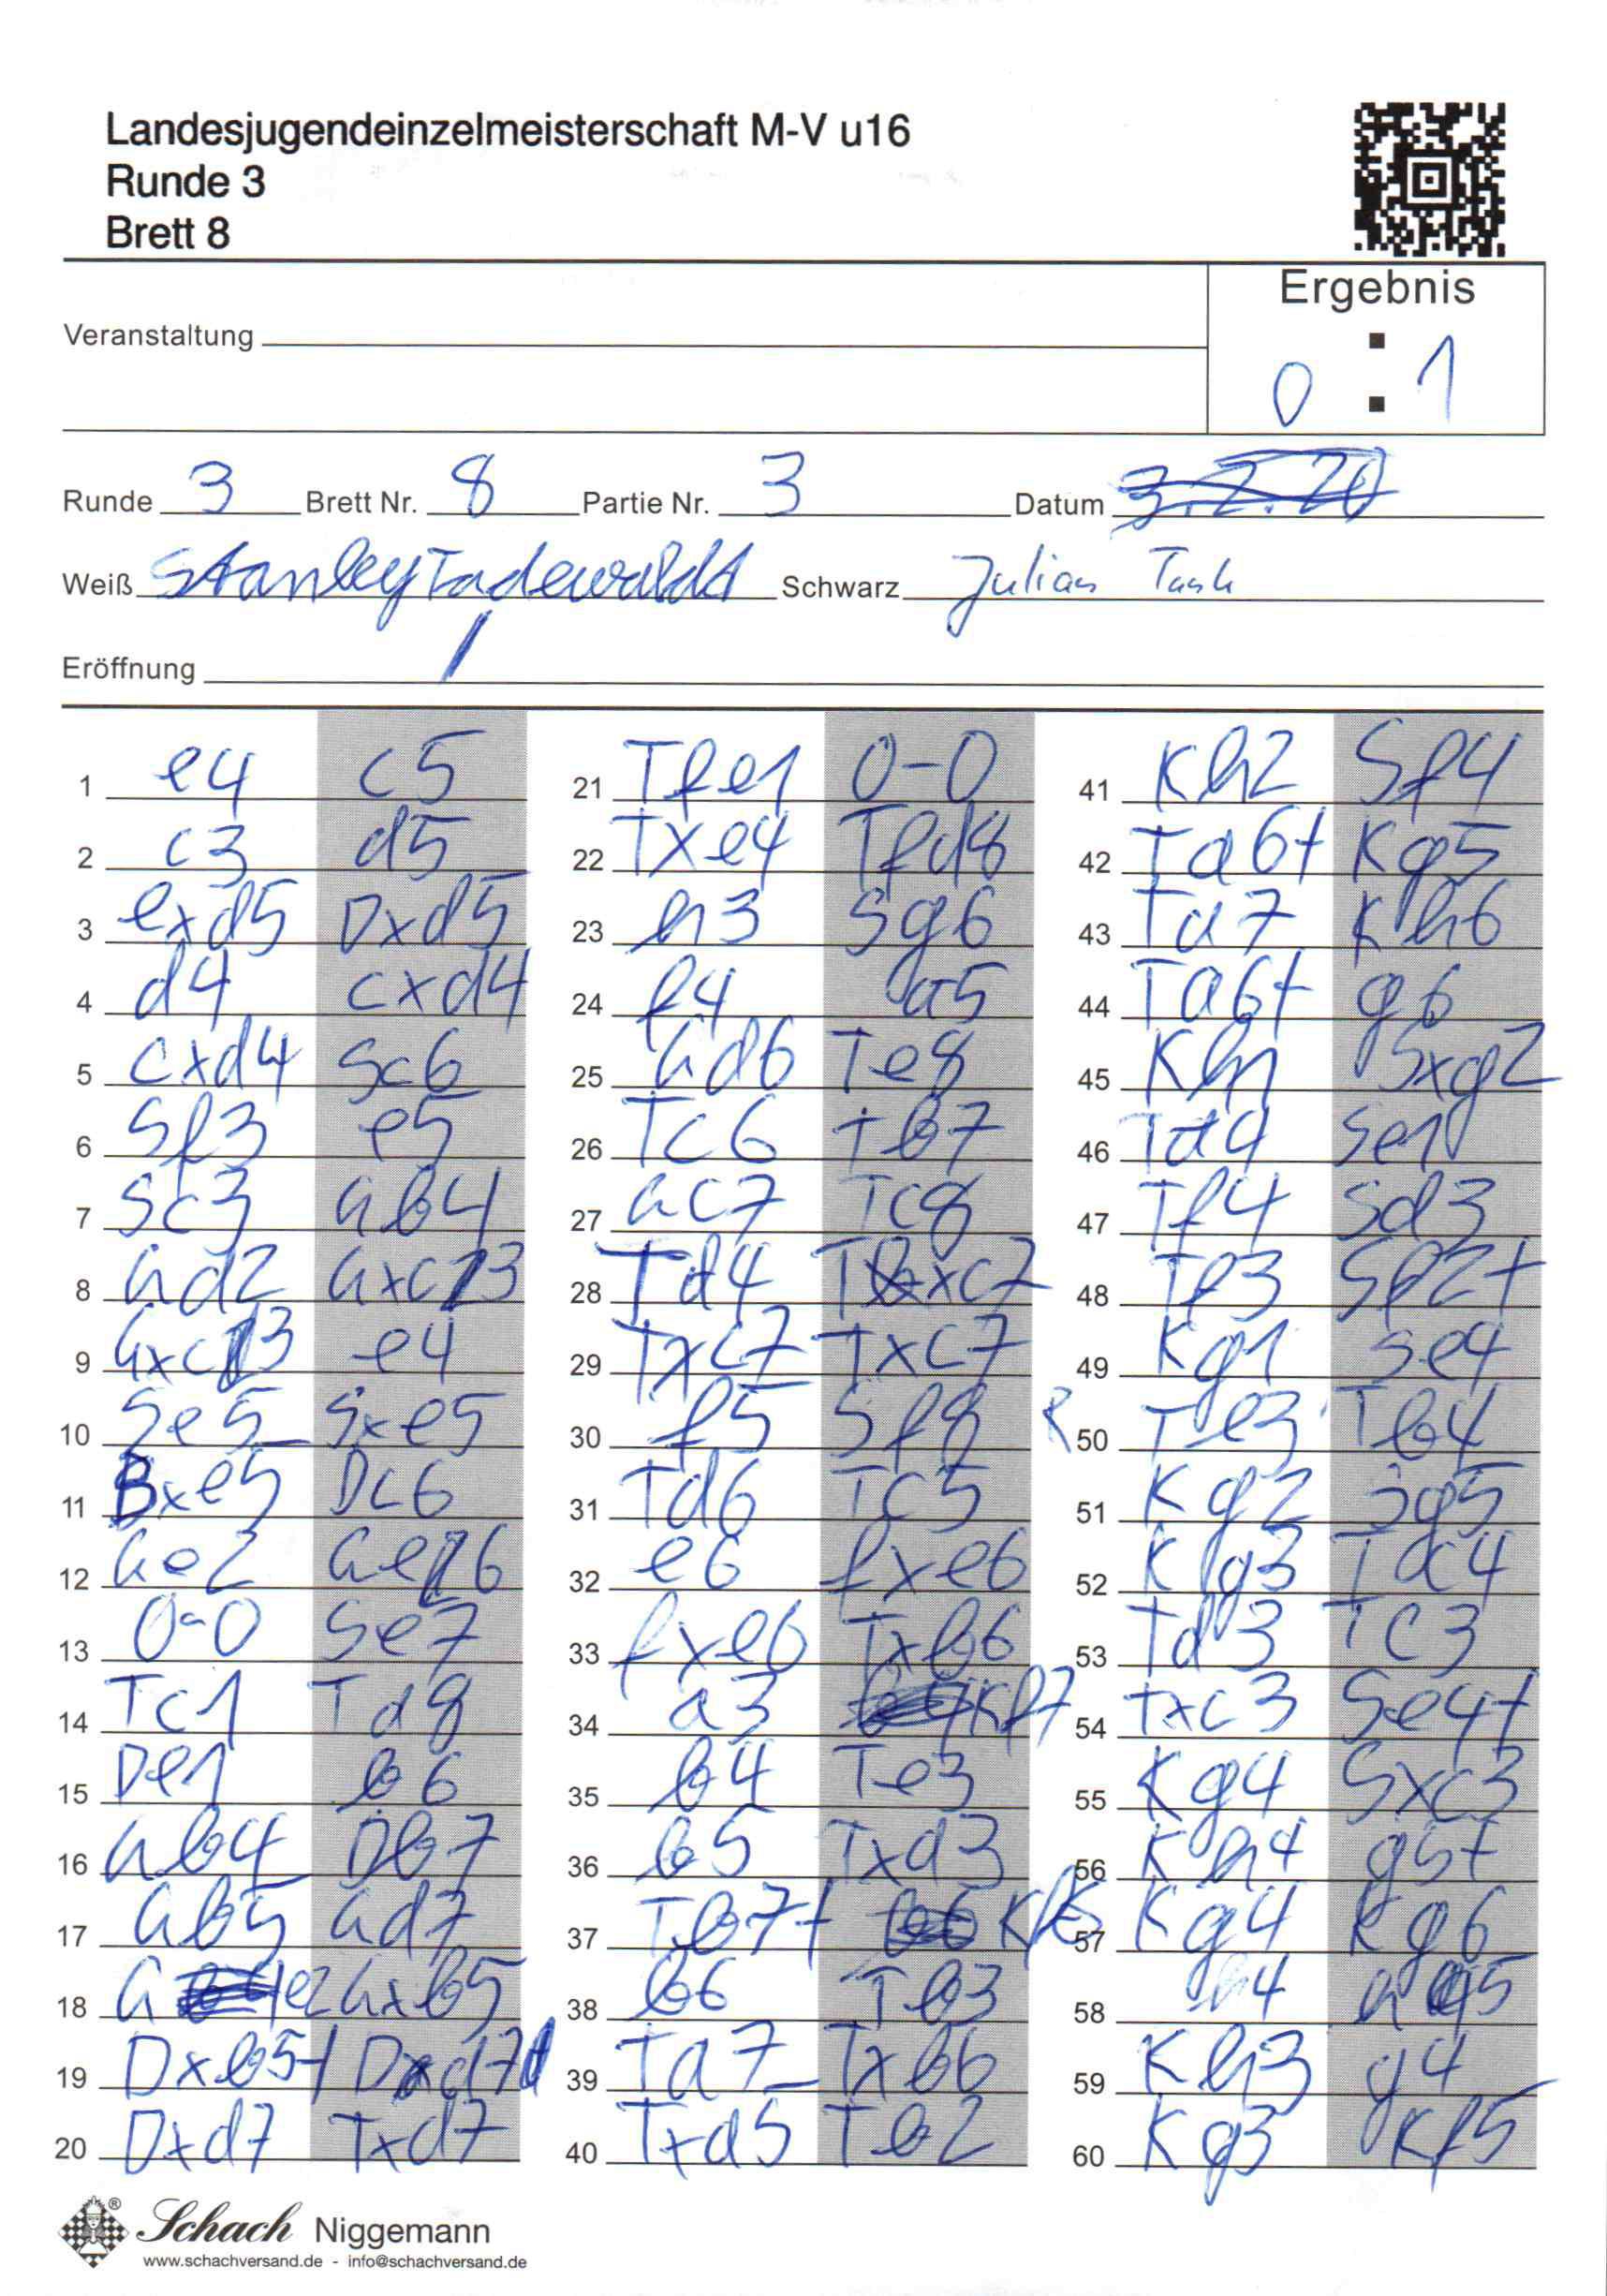 Landesjugendeinzelmeisterschaft M-V u16
Runde 3
Brett 8
Ergebnis
Veranstaltung
0 : 1
Runde 3 Brett Nr. 8 Partie Nr. 3 Datum
Weiß Stanley Schwarz Julian
Eröffnung /
1 e4 c5
2 c3 d5
3 exd5 Dxd5
4 d4 cxd4
5 cxd4 Sc6
6 Sf3 e5
7 Sc3 Lb4
8 Ld2 Lxc3
9 Lxc3 e4
10 Se5 Sxe5
11 Bxe5 Dc6
12 Le2 Le6
13 0-0 Se7
14 Tc1 Td8
15 De1 b6
16 Lb4 Db7
17 Lb5 Ld7
18 L Lxb5
19 Dxb5+ Dd7
20 Dxd7 Txd7
21 Tfe1 0-0
22 Txe4 Tfd8
23 h3 Sg6
24 f4 a5
25 Ld6 Te8
26 Tc6 Tb7
27 Lc7 Tc8
28 Td4 Tbxc7
29 Txc7 Txc7
30 f5 Sf8
31 Td6 Tc5
32 e6 fxe6
33 fxe6 Txb6
34 a3 Kf7
35 b4 Te3
36 b5 Txa3
37 Tb7+ Kf6
38 b6 Tb3
39 Ta7 Txb6
40 Txa5 Tb2
41 Kh2 Sf4
42 Ta6+ Kg5
43 Ta7 Kh6
44 Ta6+ g6
45 Kh1 Sxg2
46 Ta4 Se1
47 Tf4 Sd3
48 Tf3 Sf2+
49 Kg1 Se4
R 50 Te3 Tb4
51 Kg2 Sg5
52 Kg3 Ta4
53 Td3 Tc3
54 Txc3 Se4+
55 Kg4 Sxc3
56 Kh4 g5+
57 Kg4 Kg6
58 h4 h5
59 Kh3 g4
60 Kg3 Kf5
Schach Niggemann
www.schachversand.de - info@schachversand.de